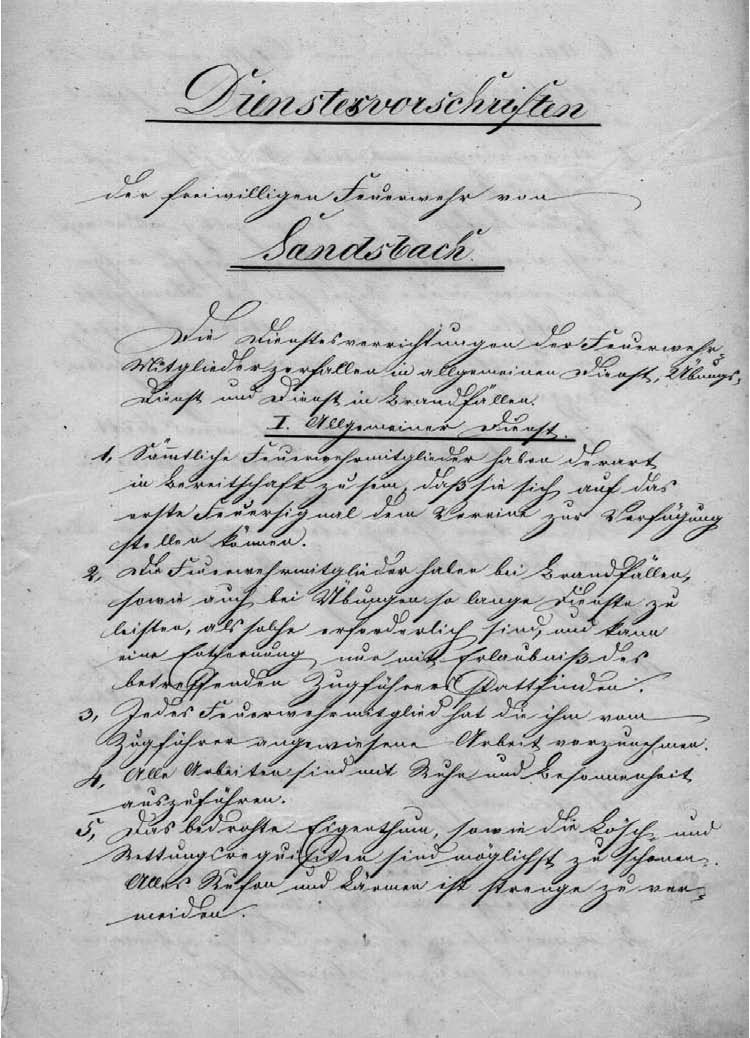 Dienstesvorschriften
der freiwilligen Feuerwehr von
Sandsbach.
Die Dienstesverrichtungen der Feuerwehr-
Mitglieder zerfallen in allgemeinen Dienst, Übungs-
Dienst und Dienst in Brandfällen.
I. Allgemeiner Dienst.
1, Sämtliche Feuerwehrmitglieder haben derart
in Bereitschaft zu sein, daß sie sich auf das
erste Feuersignal dem Vereine zur Verfügung
stellen können.
2, Die Feuerwehrmitglieder haben bei Brandfällen,
sowie auch bei Übungen so lange Dienste zu
leisten, als solche erforderlich sind, und kann
eine Entfernung nur mit Erlaubniß des
betreffenden Zugführers stattfinden.
3, Jedes Feuerwehrmitglied hat die ihm vom
Zugführer angewiesene Arbeit vorzunehmen.
4, Alle Arbeiten sind mit Ruhe und Besonnenheit
auszuführen.
5, Das bedrohte Eigenthum, sowie die Lösch- und
Rettungsrequisiten sind möglichst zu schonen.
Alles Rufen und Lärmen ist strenge zu ver-
meiden.